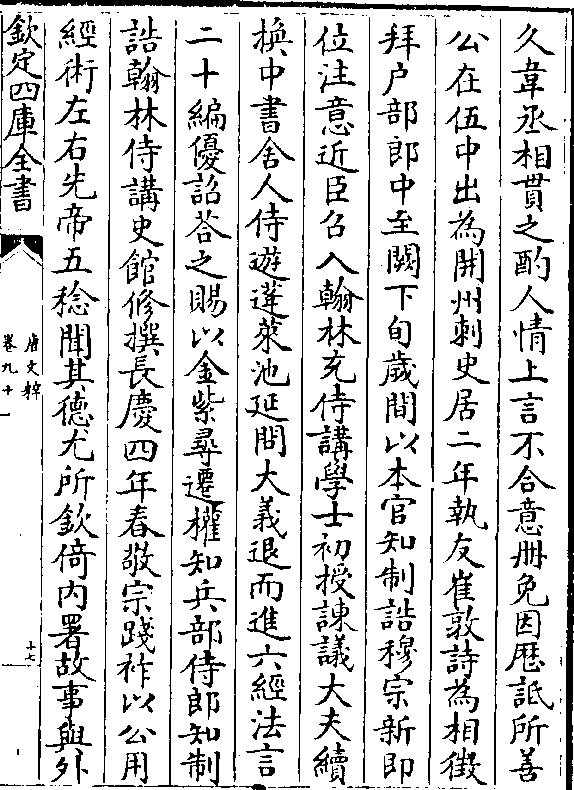 久韋丞相貫之酌人情上言不合意冊免因厯詆所善
公在伍中出為開州刺史居二年執友崔敦詩為相徴
拜户部郎中至闕下旬歲間以本官知制誥穆宗新即
位注意近臣召入翰林充侍講學士初授諫議大夫續
換中書舍人侍遊蓬萊池延問大義退而進六經法言
二十編優詔荅之賜以金紫尋遷權知兵部侍郎知制
誥翰林侍講史館修撰長慶四年春敬宗踐祚以公用
經術左右先帝五稔聞其德尤所欽倚内署故事與外
欽定四庫全書
唐文粹
卷九十
十七